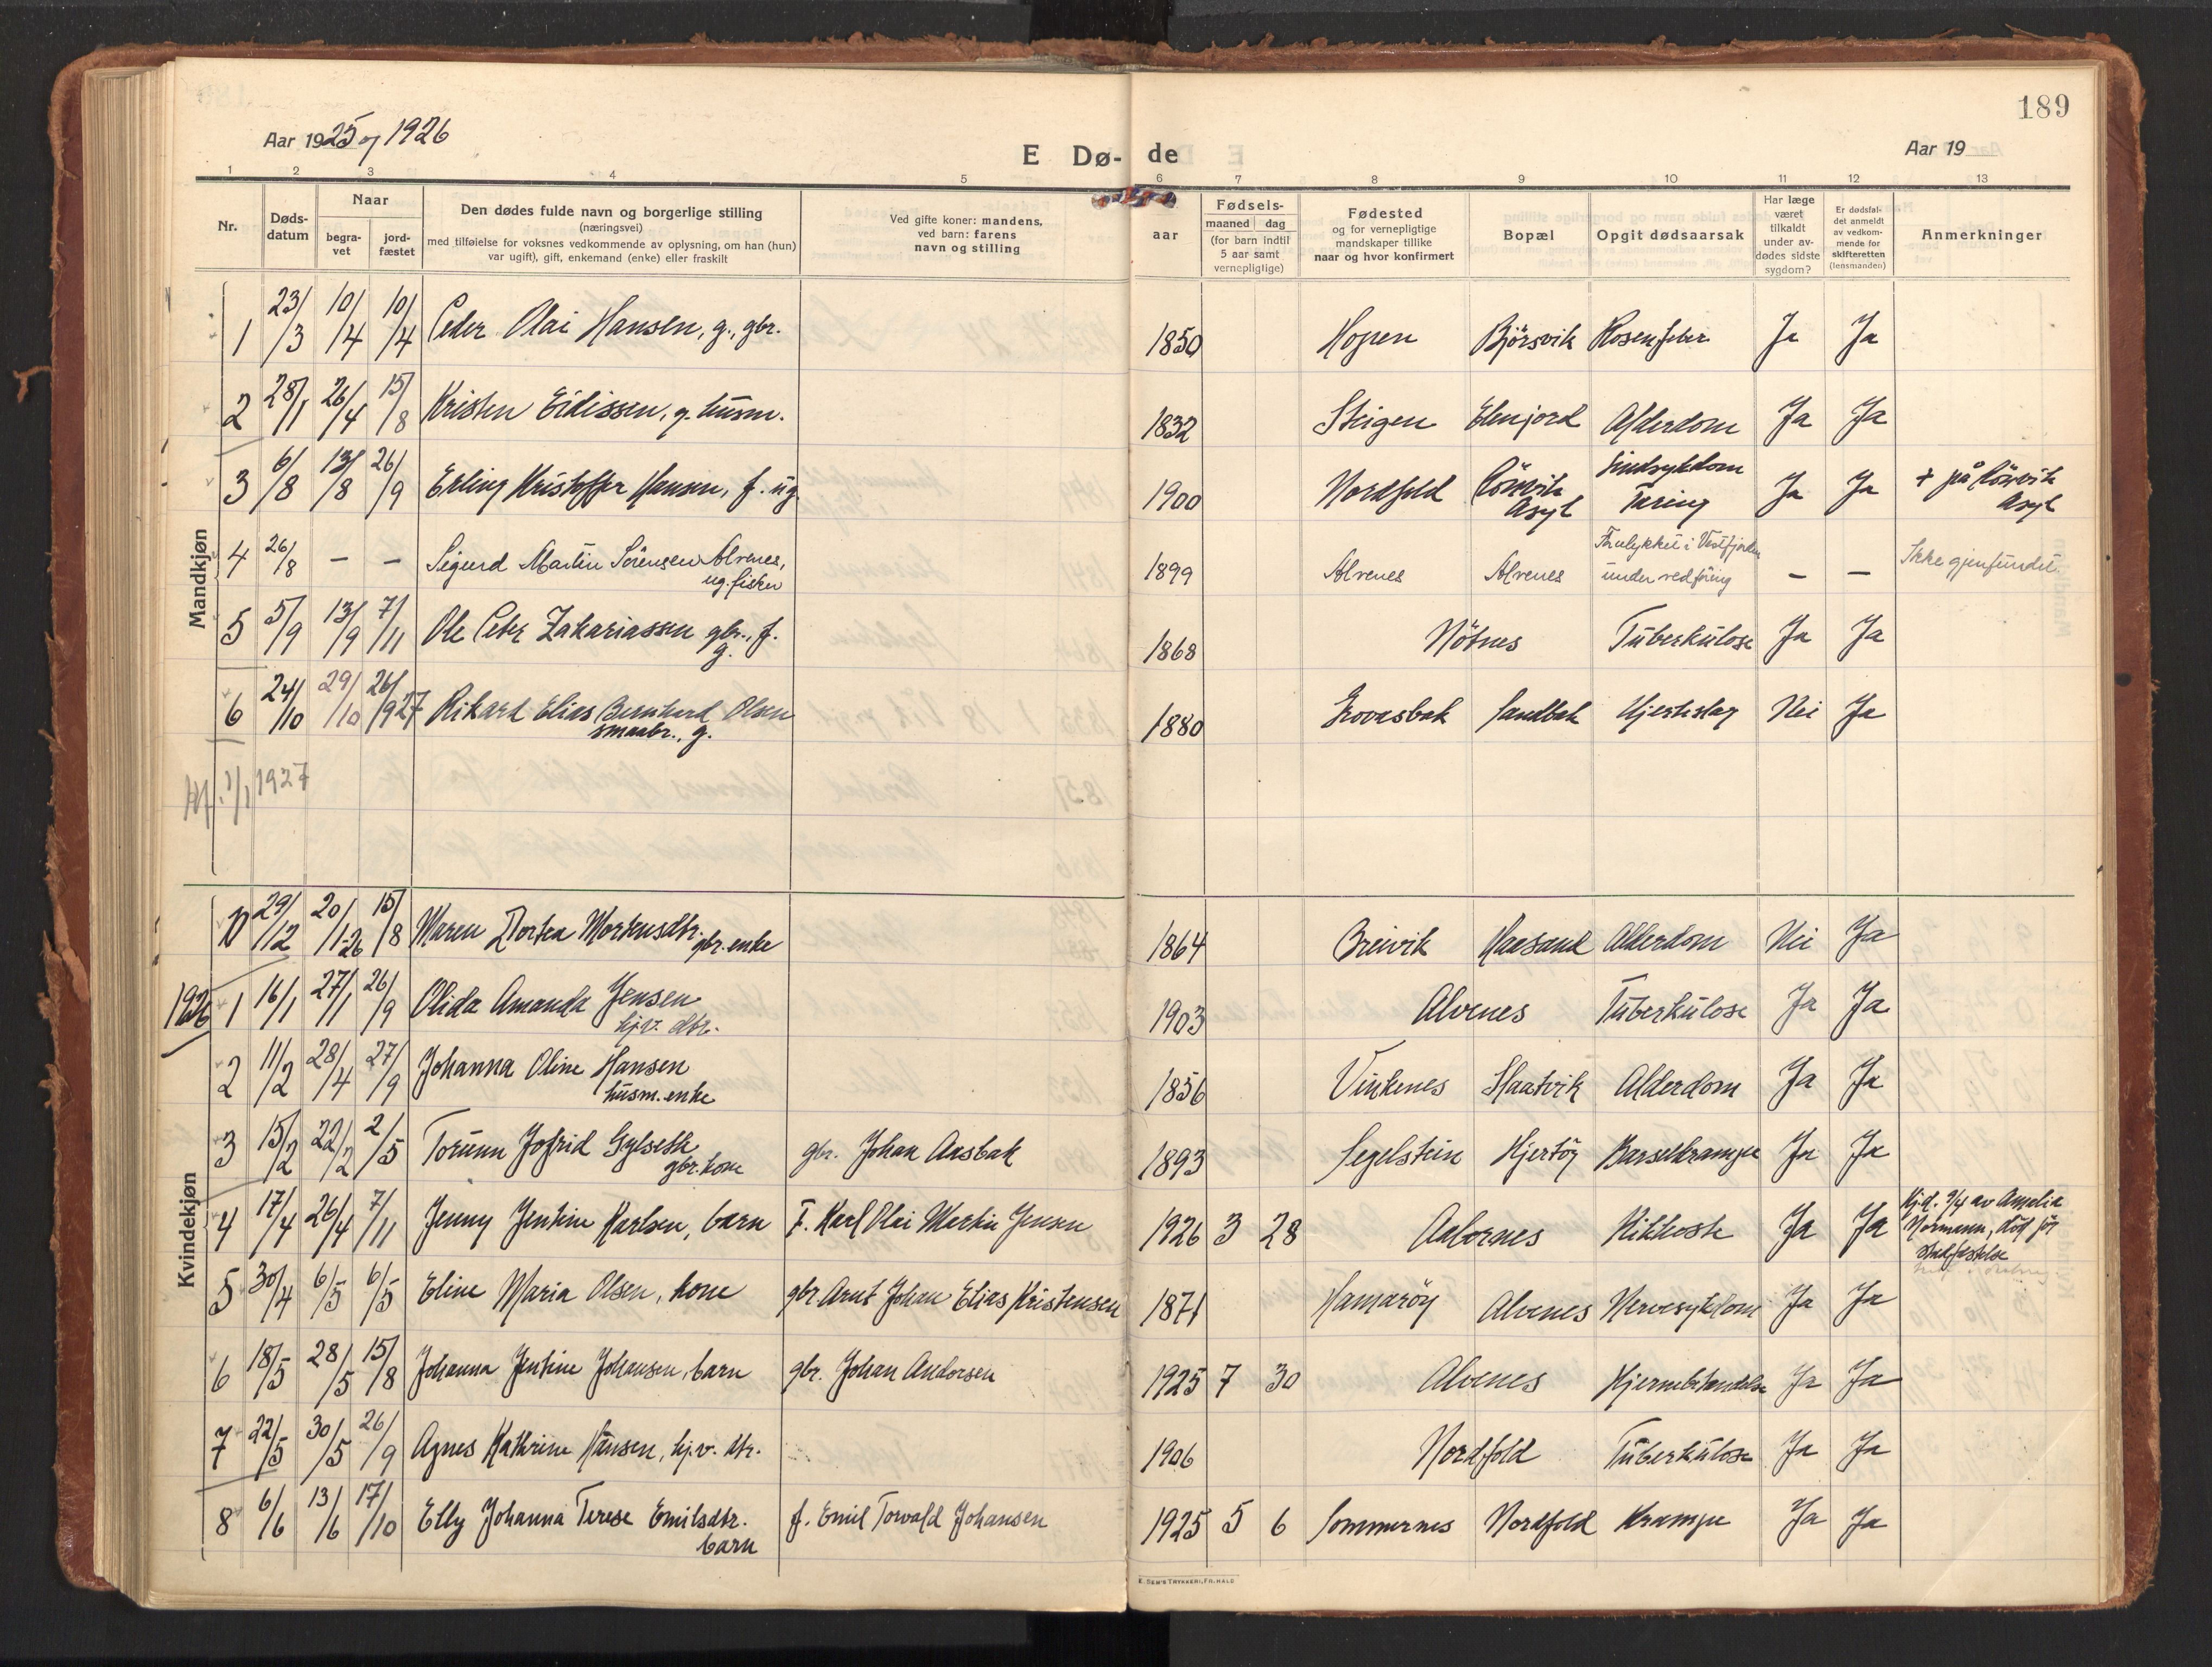 189
Aar 1925 og 1926
E Dø- de
Aar 19
1 2 3 4 5 6 7 8 9 10 11 12 13
Nr.
Døds-
datum
Naar
begra-
vet
jord-
fæstet
Den dødes fulde navn og borgerlige stilling
(næringsvei)
med tilføielse for voksnes vedkommende av oplysning, om han (hun)
var ugift), gift, enkemand (enke) eller fraskilt
Ved gifte koner: mandens,
ved barn: farens
navn og stilling
aar
Fødsels-
maaned dag
(for barn indtil
5 aar samt
vernepligtige)
Fødested
og for vernepligtige
mandskaper tillike
naar og hvor konfirmert
Bopæl
Opgit dødsaarsak
Har læge
været
tilkaldt
under av-
dødes sidste
sygdom?
Er dødsfal-
det anmeldt
av vedkom-
mende for
skifteretten
(lensmanden)
Anmerkninger
Mandkjøn
1 23/3 10/4 10/4 Peder Olai Hansen, g., gbr. 1850 Hopen Bjørsvik Rosenfeber Ja Ja
2 28/1 26/4 15/8 Kristen Eidissen, g. husm. 1832 Steigen Elenjord Alderdom Ja Ja
3 6/8 13/8 26/9 Erling Kristoffer Hansen, f. ug. 1900 Nordfold Rönvik Asyl Sindsykdom Tæring Ja Ja + på Rönvik Asyl
4 26/8 – – Sigurd Martin Sörensen Alvenes,
ug. fisker 1899 Alvenes Alvenes Forulykket i Vestfjorden
under vedföring – – Ikke gjenfundet.
5 5/9 13/9 7/11 Ole Peter Zakariassen gbr., f.
g. 1868 Nötnes Tuberkulose Ja Ja
6 24/10 29/10 26/9 27 Rikard Elias Bernhard Olsen
smaabr., g. 1880 Grovasbak Sandbak Hjerteslag Nei Ja
1/1 1927
Kvindekjøn
10 29/12 20/1-26 15/8 Maren Dortea Mortensdtr.
gbr. enke 1864 Breivik Haasand Alderdom Nei Ja
1926 1 16/1 27/1 26/9 Olida Amanda Jensen
hj.v. dtr. 1903 Alvenes Tuberkulose Ja Ja
2 11/2 28/4 27/9 Johanna Oline Hansen
husm. enke 1856 Vinkenes Slaatvik Alderdom Ja Ja
3 15/2 22/2 2/5 Torunn Jofrid Gylseth
gbr. kone gbr. Johan Aasbak 1893 Segelstein Hjertöy Barselkrampe Ja Ja
4 17/4 26/4 7/11 Jenny Jentine Karlsen, barn F. Karl Olai Martin Jensen 1926 3 28 Aalvenes Kikhoste Ja Ja Hj.d. 9/4 av Amalia
Normann, död för
stadfæstelse
5 30/4 6/5 6/5 Eline Maria Olsen, kone gbr. Arnt Johan Elias Kristensen 1871 Hamaröy Alvenes Nervesykdom Ja Ja
6 18/5 28/5 15/8 Johanna Jentine Johansen, barn gbr. Johan Andorsen 1925 7 30 Alvenes Hjernebetændelse Ja Ja
7 22/5 30/5 26/9 Agnes Kathrine Hansen, hj.v. dtr. 1906 Nordfold Tuberkulose Ja Ja
8 6/6 13/6 17/10 Elly Johanna Terese Emilsdtr.
barn f. Emil Torvald Johansen 1925 5 6 Sommernes Nordfold Krampe Ja Ja
E. SEM'S TRYKKERI, FR.HALD